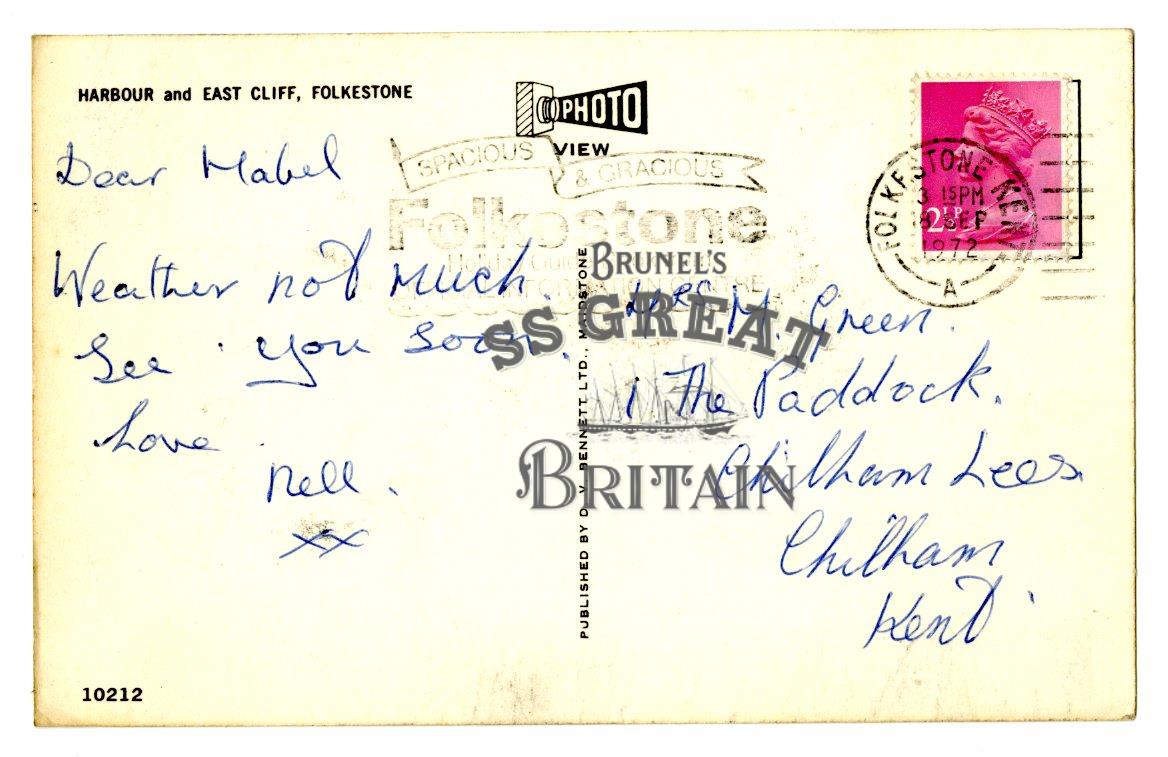 HARBOUR and EAST CLIFF, FOLKESTONE
PHOTO
VIEW
SPACIOUS
& GRACIOUS
Folkestone
FOLKESTONE KENT
3 15PM
SEP
1972
A
2½P
Dear Mabel
Weather not much.
See you soon.
Love
Nell.
xx
BRUNEL'S
SS GREAT
BRITAIN
Mrs M. Green.
1 The Paddock.
Chilham Lees
Chilham
Kent
PUBLISHED BY D. V. BENNETT LTD., MAIDSTONE
10212